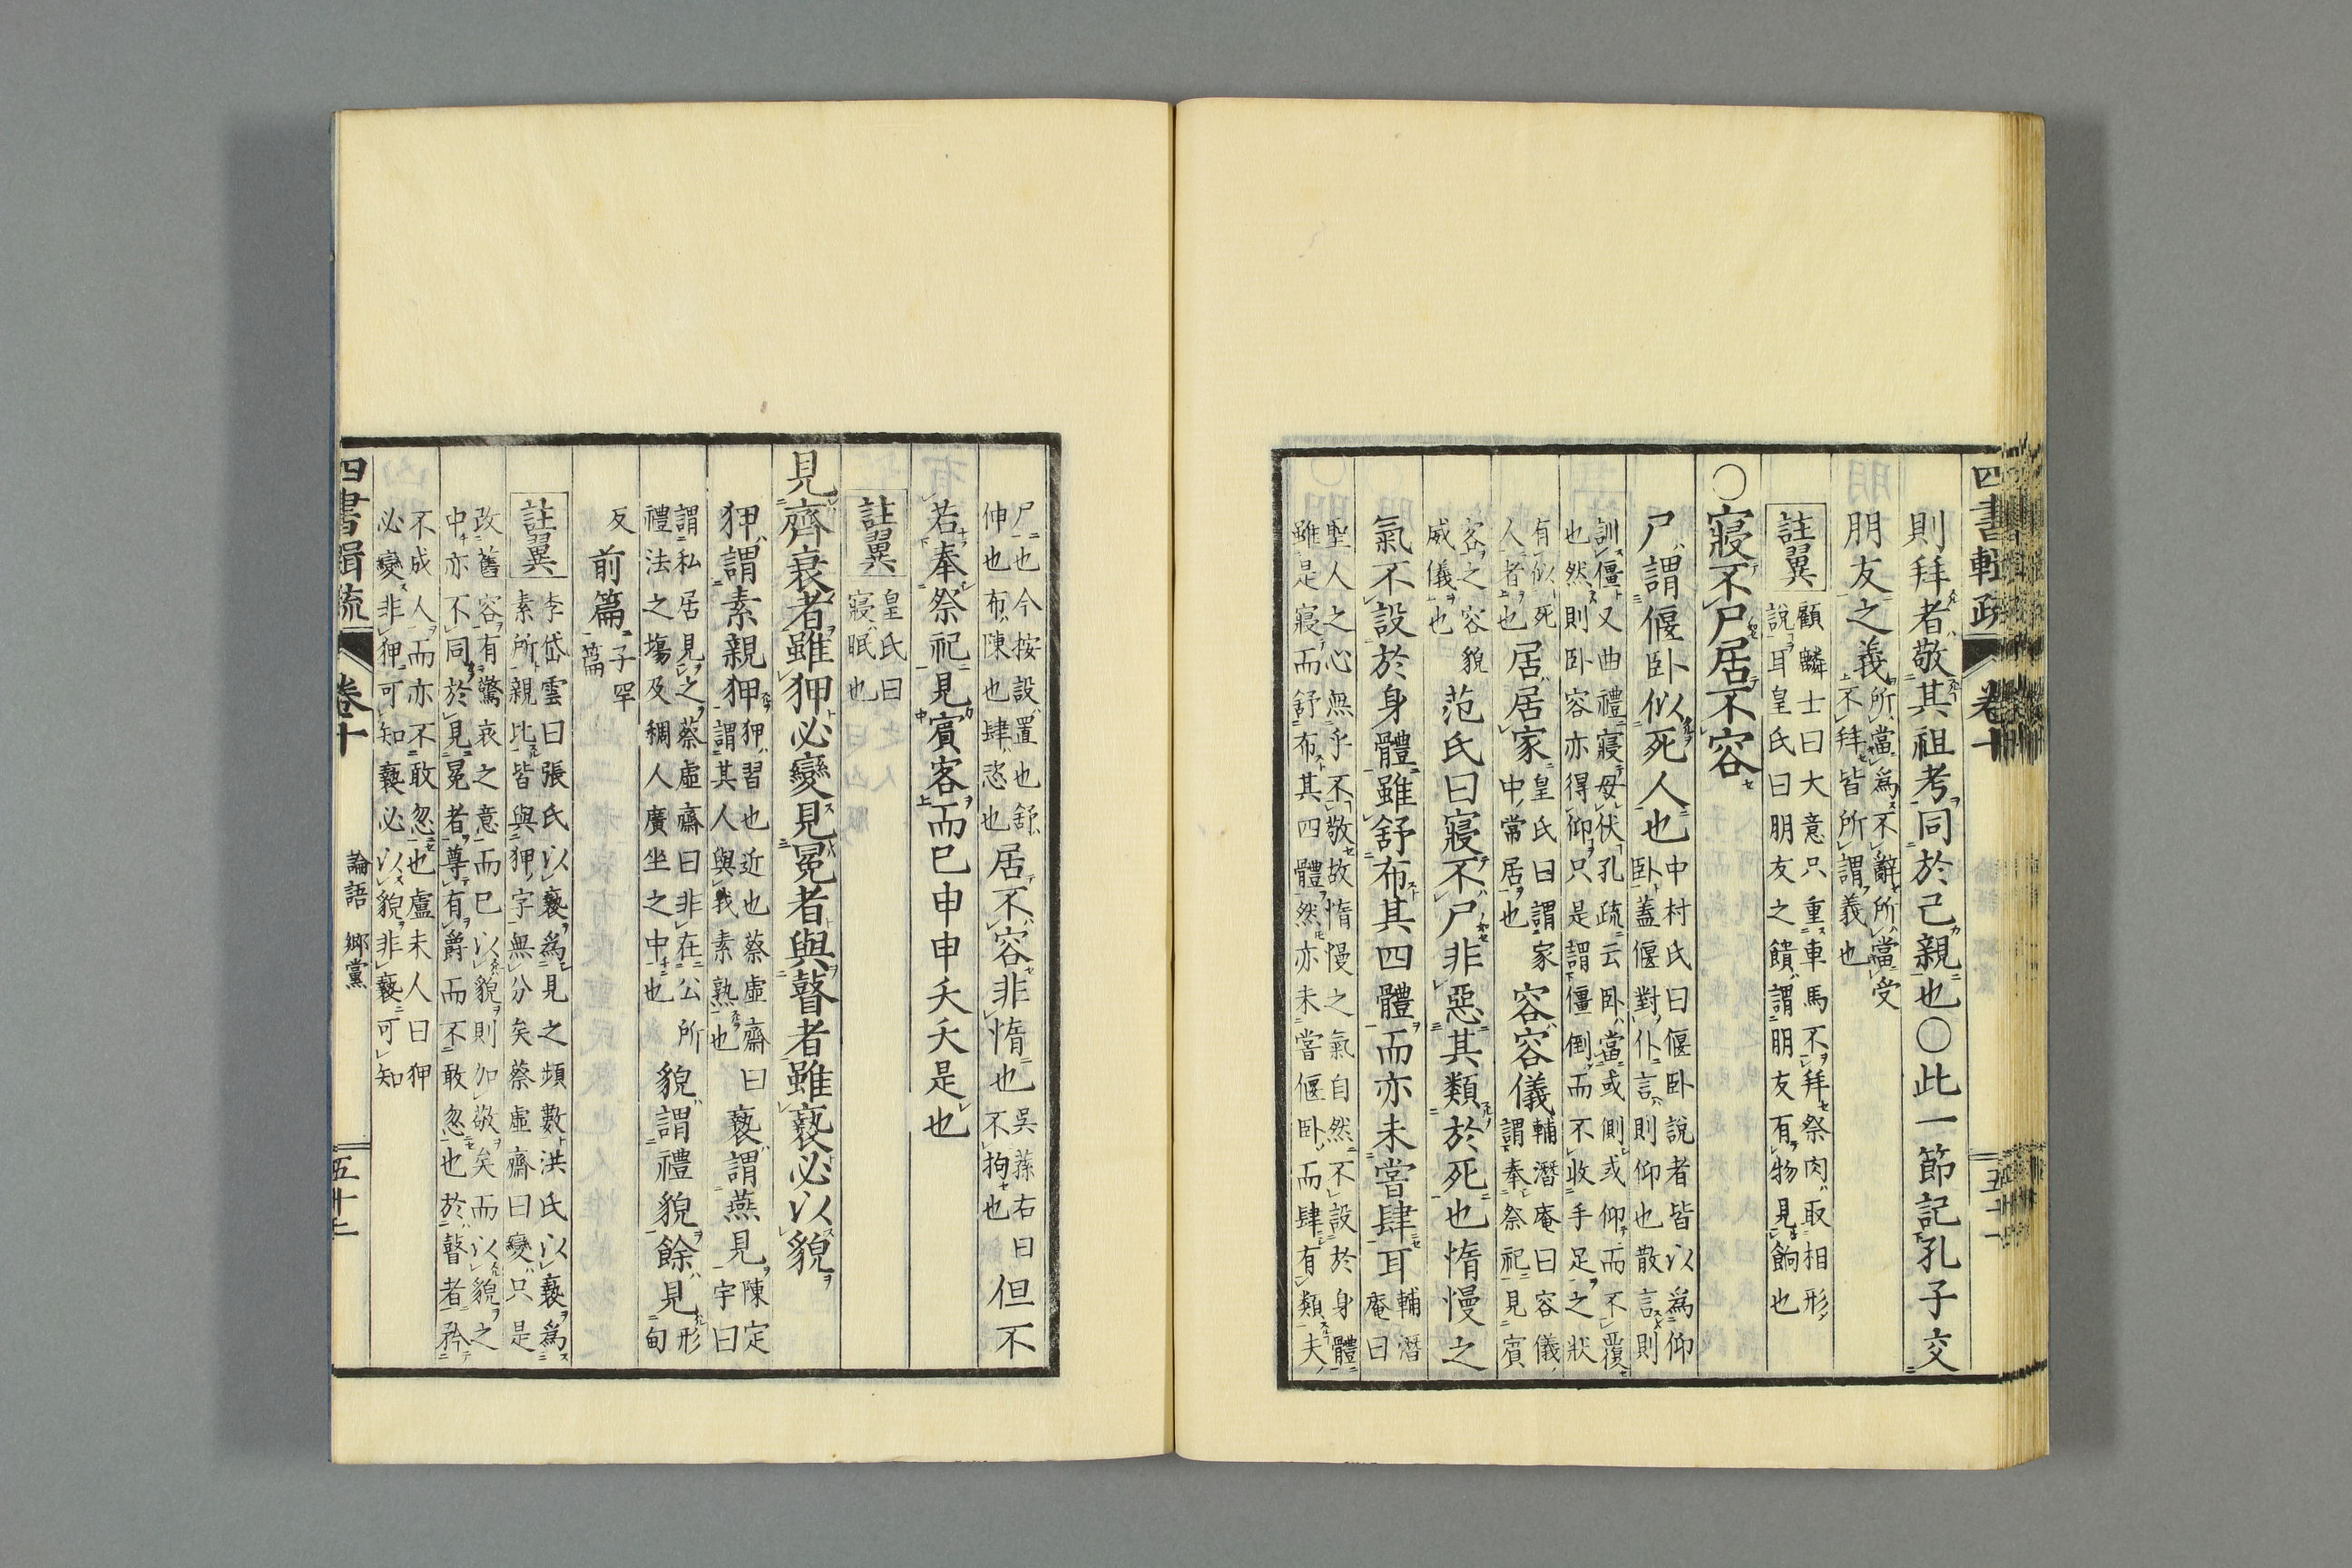 四書輯疏 卷十 五十一
則拜者敬其祖考同於己親也○此一節記孔子交
朋友之義所當爲不辭所當受
不拜皆所謂義也
註翼 顧麟士曰大意只重車馬不拜祭肉取相形
說耳皇氏曰朋友之饋謂朋友有物見餉也
○寢不尸居不容
尸謂偃卧似死人也中村氏曰偃卧說者皆以爲仰
卧蓋偃對仆言則仰也散言則
訓僵又曲禮寢毋伏孔疏云卧當或側或仰而不覆
也然則卧容亦得仰只是謂僵倒而不收手足之狀
有似死
人者也居居家皇氏曰謂家
中常居也容容儀輔潛庵曰容儀
謂奉祭祀見賓
客之容貌
威儀也范氏曰寢不尸非惡其類於死也惰慢之
氣不設於身體雖舒布其四體而亦未嘗肆耳輔潛
庵曰
聖人之心無乎不敬故惰慢之氣自然不設於身體
雖是寢而舒布其四體然亦未嘗偃卧而肆有類夫
尸也今按設置也舒
伸也布陳也肆恣也居不容非惰也吳蓀右曰
不拘也但不
若奉祭祀見賓客而已申申夭夭是也
註翼 皇氏曰
寢眠也
見齊衰者雖狎必變見冕者與瞽者雖褻必以貌
狎謂素親狎狎習也近也蔡虛齋曰
謂其人與我素熟也褻謂燕見陳定
宇曰
謂私居見之蔡虛齋曰非在公所
禮法之場及稠人廣坐之中也貌謂禮貌餘見形
甸
反前篇子罕
篇
註翼 李岱雲曰張氏以褻爲見之頻數洪氏以褻爲
素所親比皆與狎字無分矣蔡虛齋曰變只是
改舊容有驚哀之意而已以貌則加敬矣而以貌之
中亦不同於見冕者尊有爵而不敢忽也於瞽者矜
不成人而亦不敢忽也盧未人曰狎
必變非狎可知褻必以貌非褻可知
四書輯疏 卷十 論語 鄉黨 五十二